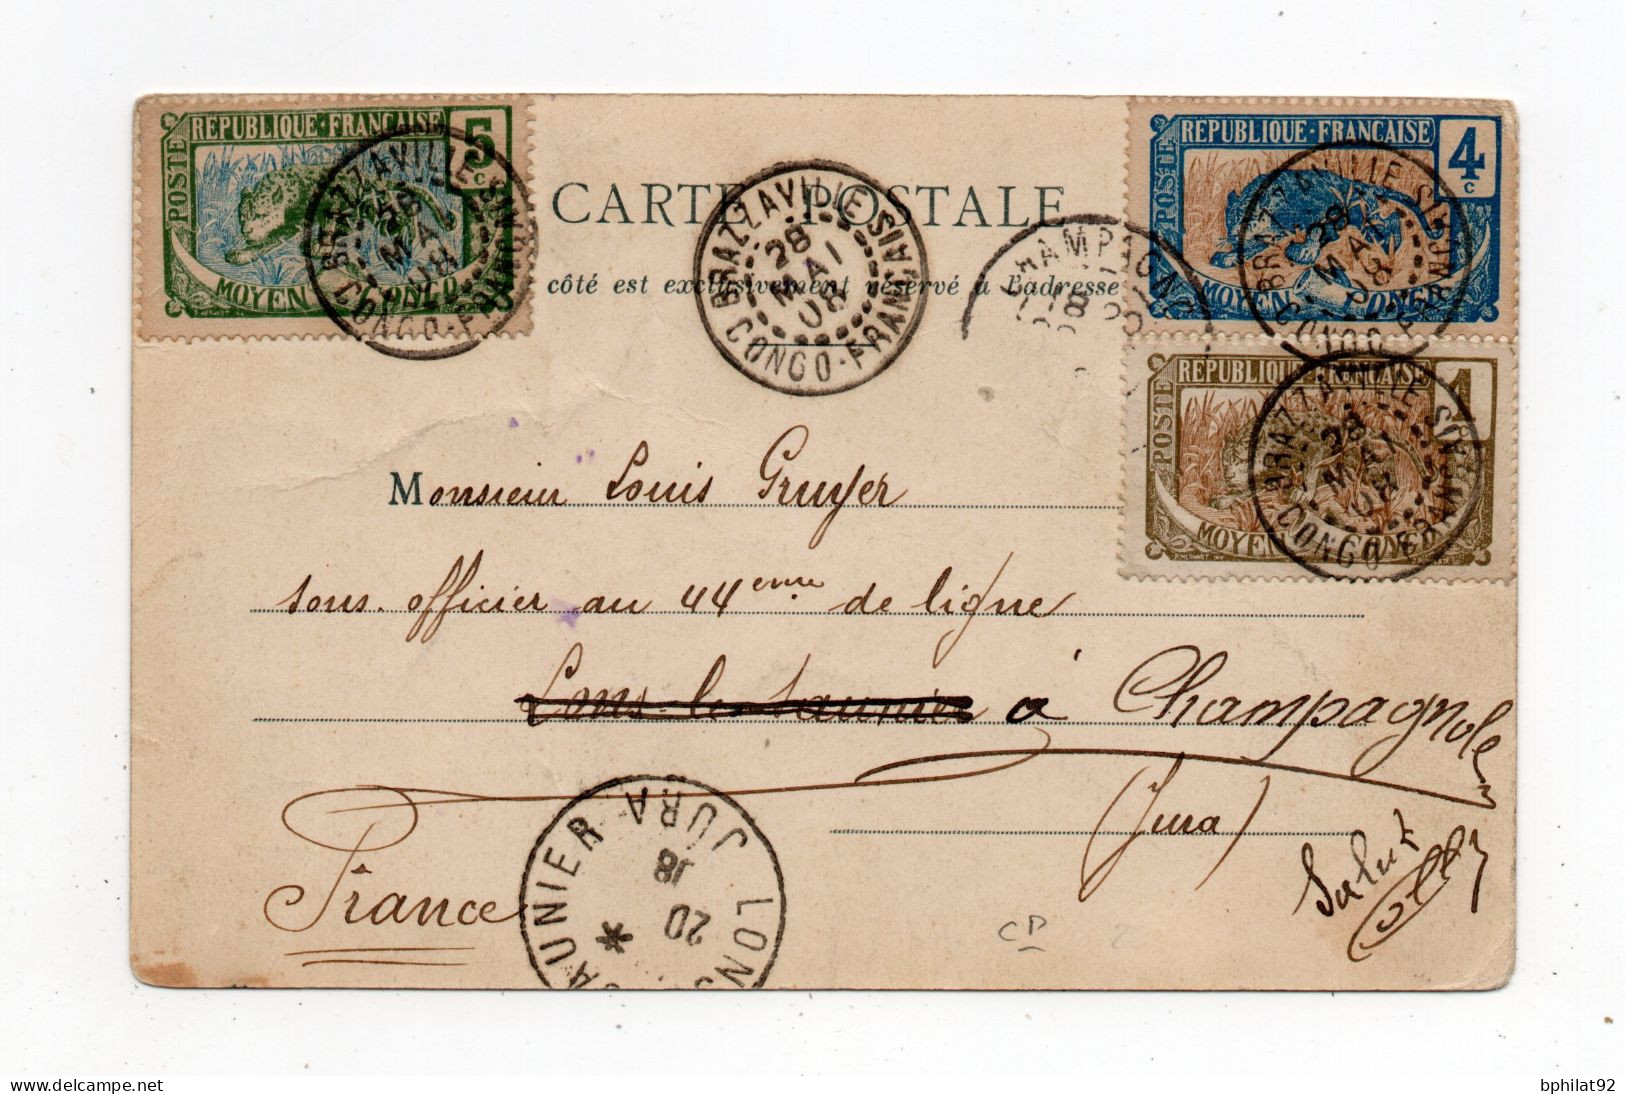 POSTE RÉPUBLIQUE·FRANÇAISE 5 c
MOYEN CONGO
BRAZZAVILLE
28 MAI 08
CONGO-FRANÇAIS
CARTE POSTALE
côté est exclusivement réservé à l'adresse
BRAZZAVILLE
28
MAI
08
CONGO-FRANÇAIS
CHAMPAGNO
POSTE RÉPUBLIQUE·FRANÇAISE 4 c
MOYEN CONGO
BRAZZAVILLE
28
MAI
08
CONGO-FRANÇAIS
POSTE RÉPUBLIQUE·FRANÇAISE 1
MOYEN CONGO
BRAZZAVILLE
28
MAI
08
CONGO-FRANÇAIS
Monsieur Louis Gruyer
sous. officier au 44eme de ligne
Lons-le-Saunier à Champagnole
(Jura)
France
LONS SAUNIER JURA
20
Salut
CP
bphilat92